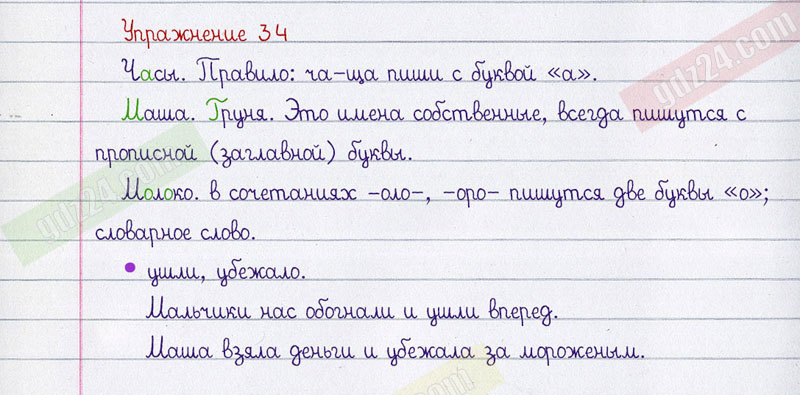 Упражнение 34
Часы. Правило: ча-ща пиши с буквой «а».
Маша. Груня. Это имена собственные, всегда пишутся с
прописной (заглавной) буквы.
Молоко. в сочетаниях -оло-, -оро- пишутся две буквы «о»;
словарное слово.
• ушли, убежало.
Мальчики нас обогнали и ушли вперед.
Маша взяла деньги и убежала за мороженым.
gdz24.com
gdz24.com
com